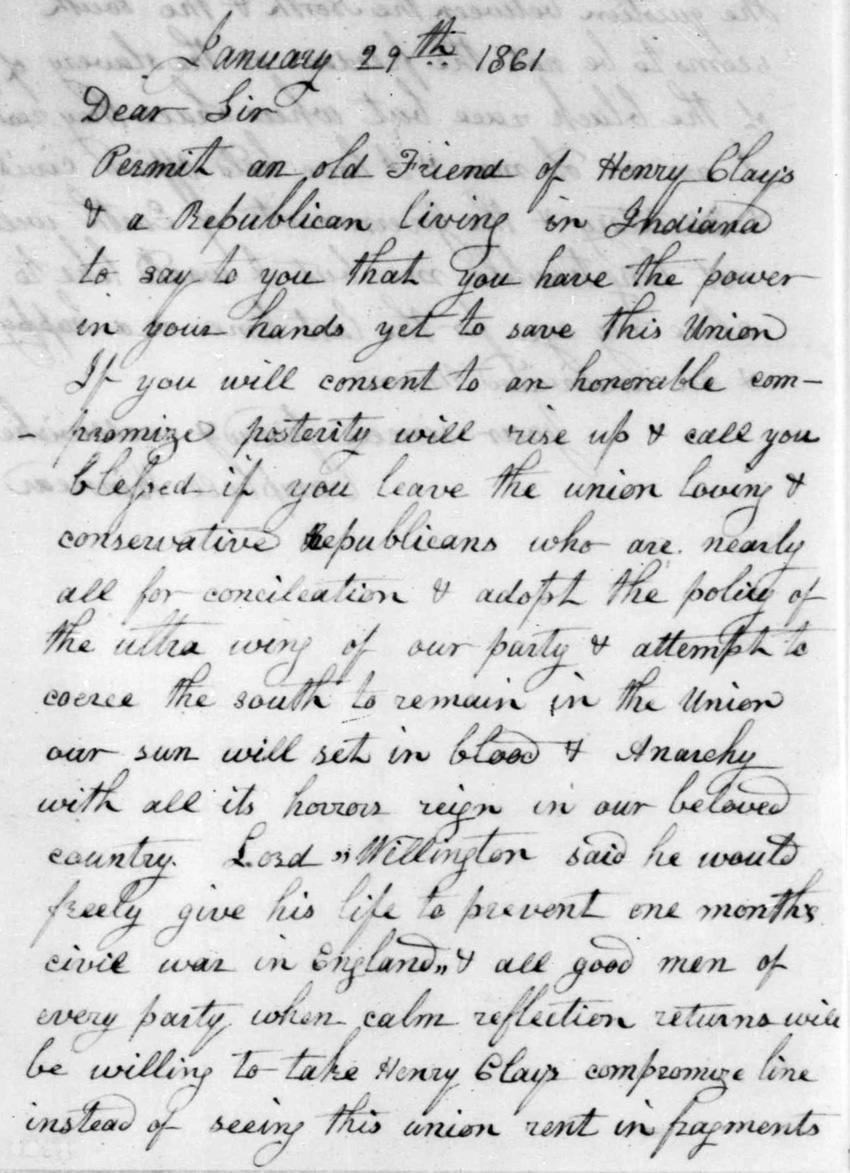 January 29th 1861
Dear Sir
Permit an old Friend of Henry Clay's
& a Republican living in Indiana
to say to you that you have the power
in your hands yet to save this Union
If you will consent to an honorable com-
-promize posterity will rise up & call you
blessed if you leave the union loving &
conservative Republicans who are nearly
all for concileation & adopt the policy of
the ultra wing of our party & attempt to
coerce the south to remain in the Union
our sun will set in blood & Anarchy
with all its horrors reign in our beloved
country. Lord "Willington said he would
freely give his life to prevent one months
civil war in England" & all good men of
every party when calm reflection returns will
be willing to take Henry Clays compromize line
instead of seeing this union rent in fragments